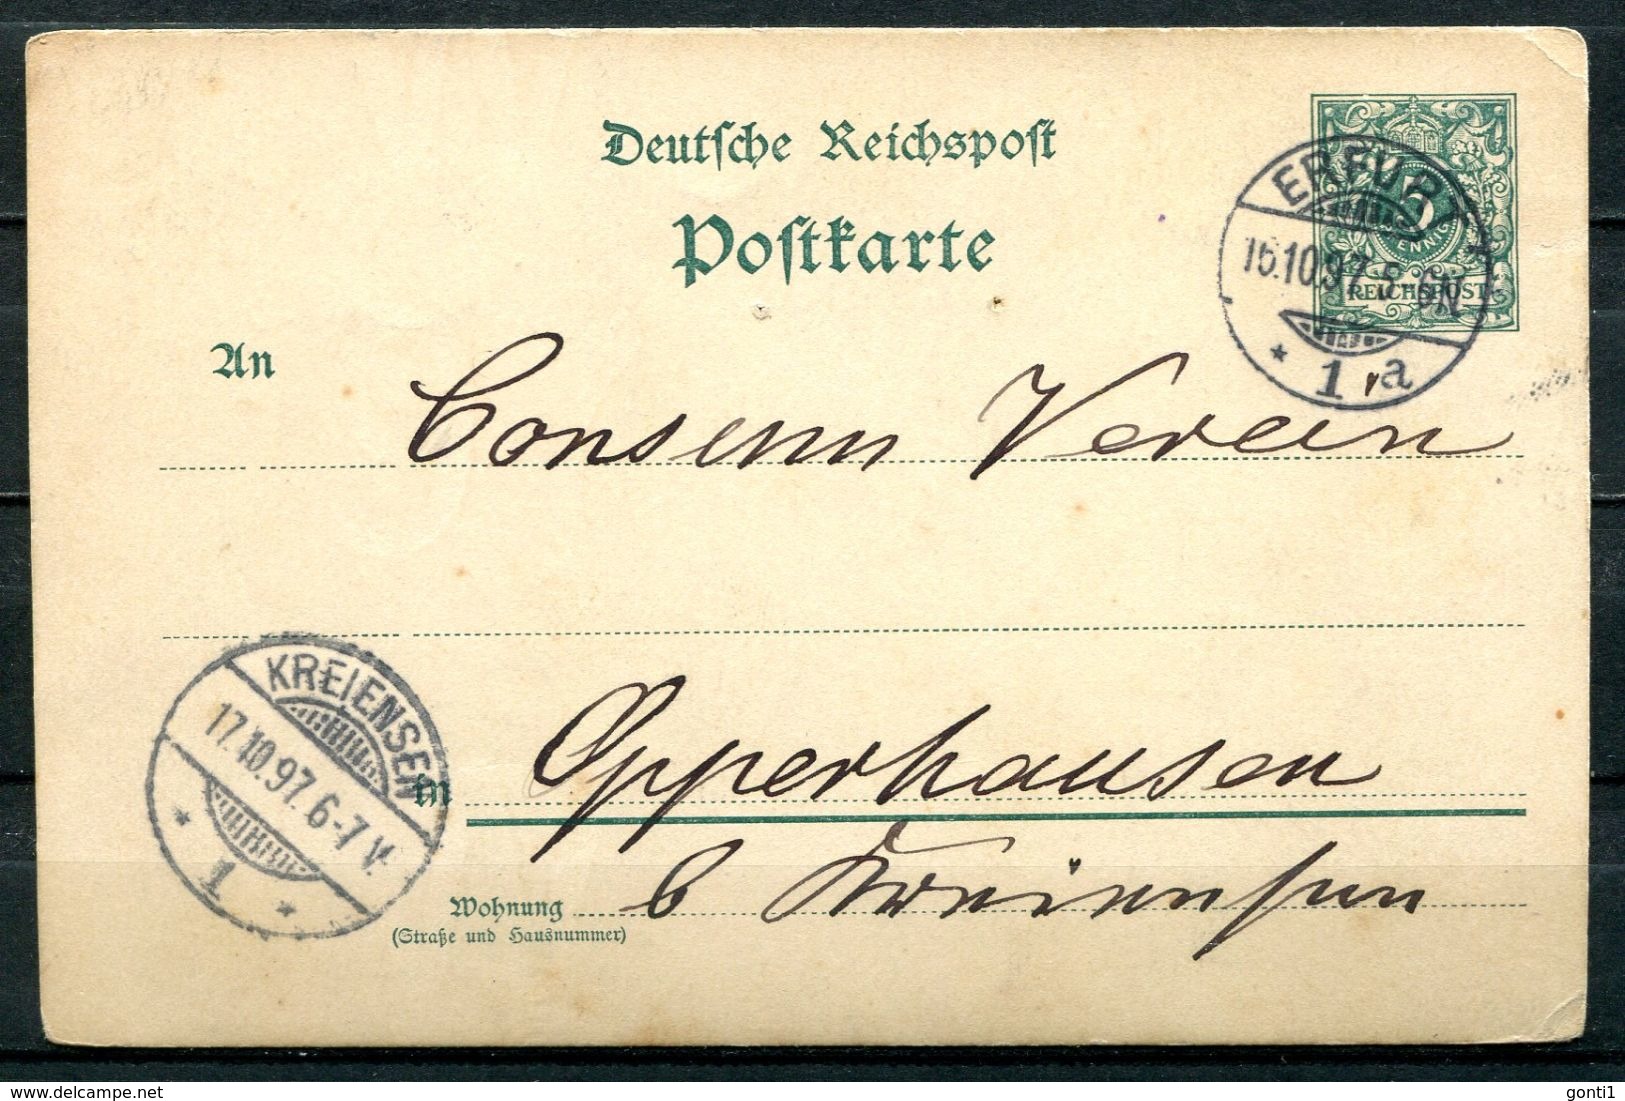 Deutsche Reichspost
Postkarte
5
PFENNIG
REICHSPOST
ERFURT
16.10.97. 8-9N
* 1 a
An Consum Verein
KREIENSEN
17.10.97. 6-7V.
* 1 *
in Opperhausen
Wohnung b Kreiensen
(Straße und Hausnummer)
delcampe.net
gonti1